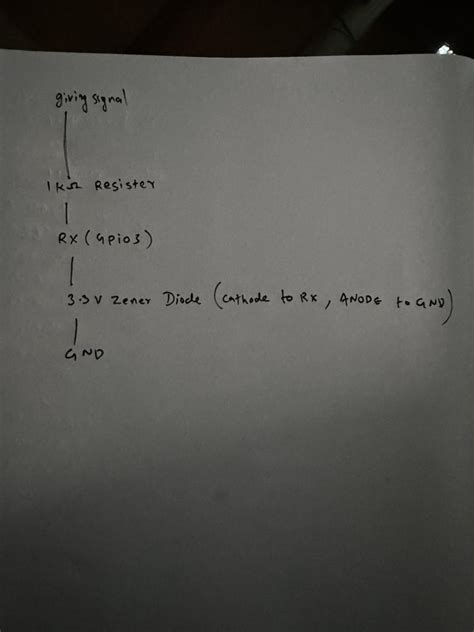 giving signal
1kΩ Resister
RX (GPIO3)
3.3V Zener Diode (Cathode to RX, ANODE to GND)
GND